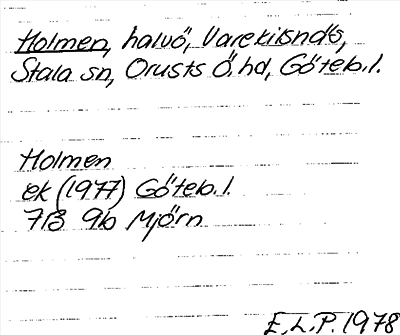 Holmen, halvö, Varekilsnäs,
Stala sn, Orusts Ö. hd, Göteb. l.
Holmen
ek (1977) Göteb. l.
7B 9b Mjörn
E. L. P. 1978